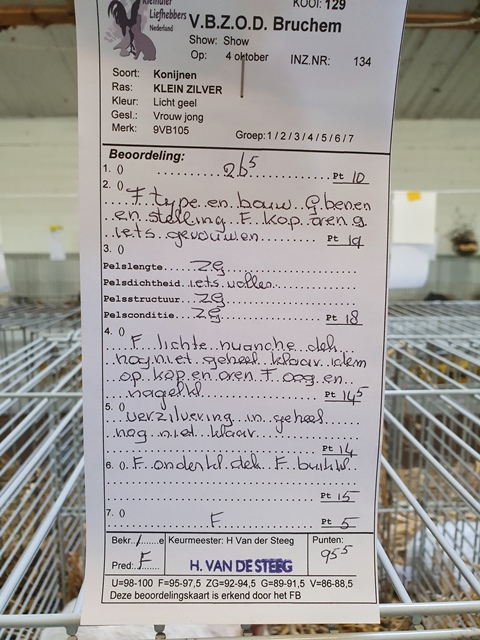 Kleindier
KOOI: 129
Liefhebbers
Nederland
V.B.Z.O.D. Bruchem
Show: Show
Op: 4 oktober INZ.NR: 134
Soort: Konijnen
Ras: KLEIN ZILVER
Kleur: Licht geel
Gesl.: Vrouw jong
Merk: 9VB105
Groep:1 / 2 / 3 / 4 / 5 / 6 / 7
Beoordeling:
1. () 2b5 Pt 10
2. () F type en bouw G benen
en stelling F kop oren g
iets gevouwen Pt 19
3. ()
Pelslengte ZG
Pelsdichtheid iets voller
Pelsstructuur ZG
Pelsconditie ZG Pt 18
4. () F lichte nuanche dek
nog niet geheel klaar idem
op kop en oren F oog en
nagelkl Pt 145
5. () verzilvering in geheel
nog niet klaar
Pt 14
6. () F onderkl dek F buikkl
Pt 15
7. () F Pt 5
Bekr./......e Keurmeester: H Van der Steeg Punten:
Pred: F H. VAN DE STEEG 95 5
U=98-100 F=95-97,5 ZG=92-94,5 G=89-91,5 V=86-88,5
Deze beoordelingskaart is erkend door het FB